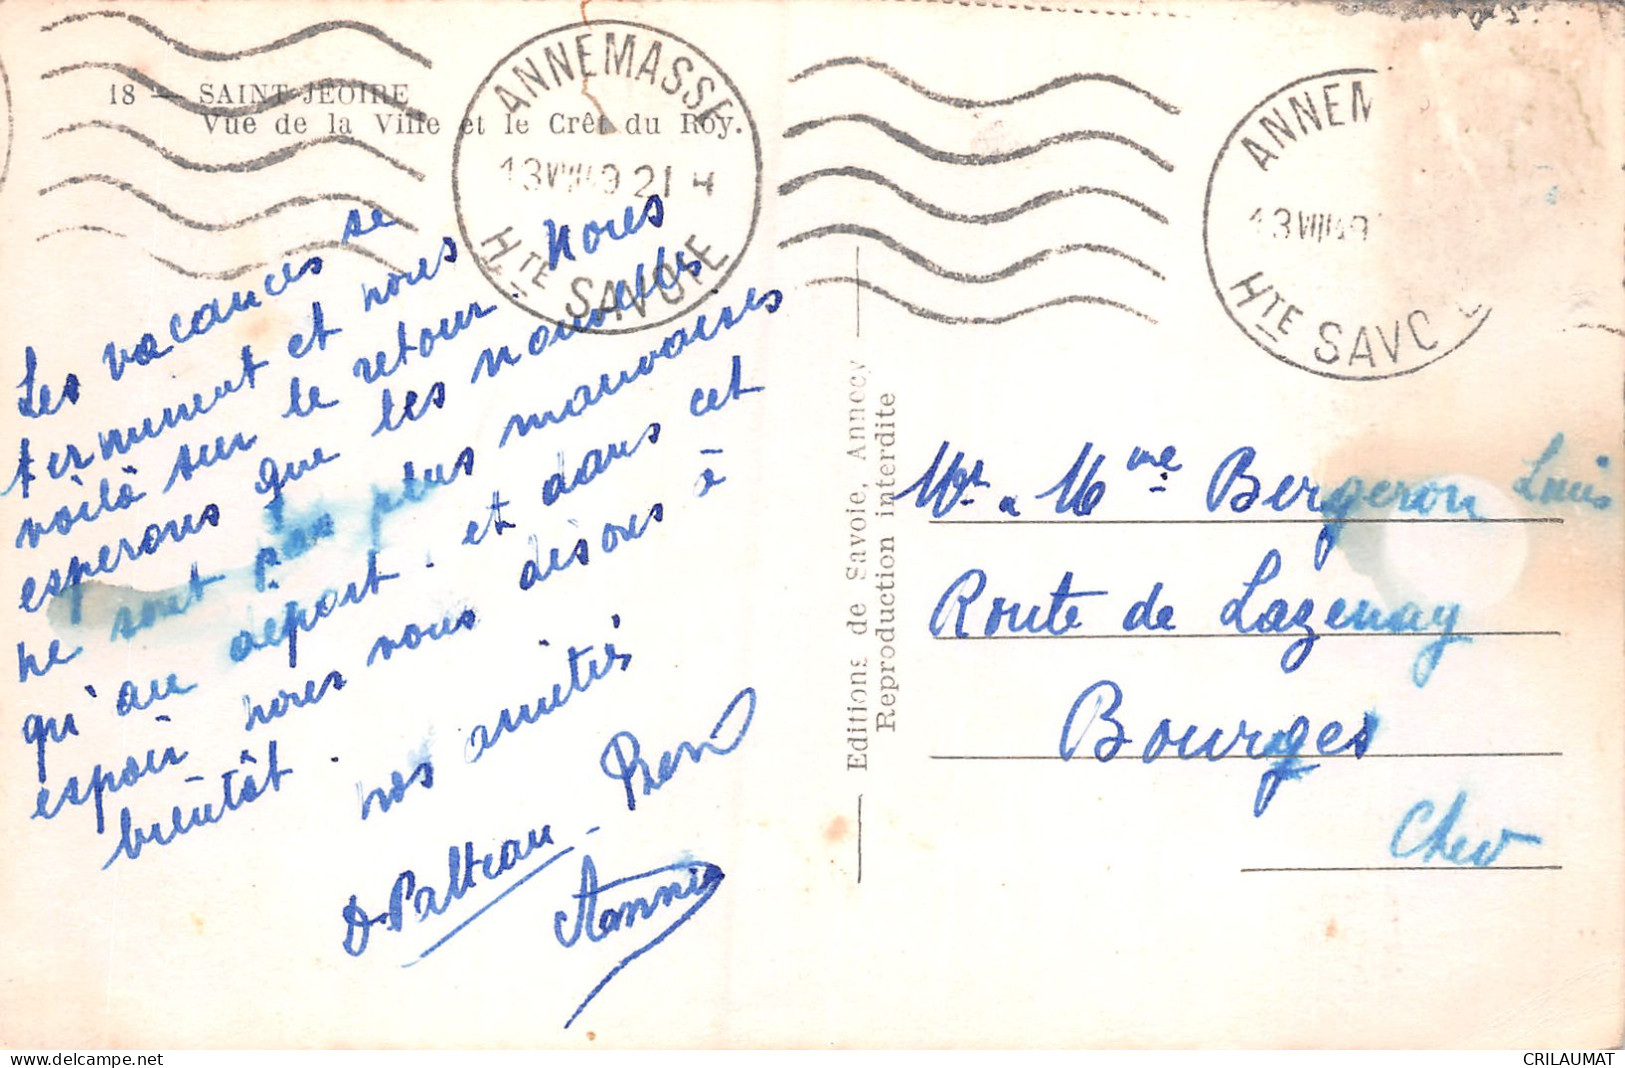 18 — SAINT-JEOIRE
Vue de la Ville et le Crêt du Roy.
ANNEMASSE
13 VIII 49 21 H
HTE SAVOIE
ANNEM
13 VIII 49
HTE SAVO
Les vacances se
terminent et nous
voilà sur le retour. Nous
esperons que les nouvelles
ne sont pas plus mauvaises
qu'au départ. et dans cet
espoir nous nous disons à
bientôt.
nos amitiés
D. Palteau - René
Annie
Editions de Savoie, Annecy
Reproduction interdite
Mr & Mme Bergeron Louis
Route de Lazenay
Bourges
Cher
www.delcampe.net
CRILAUMAT